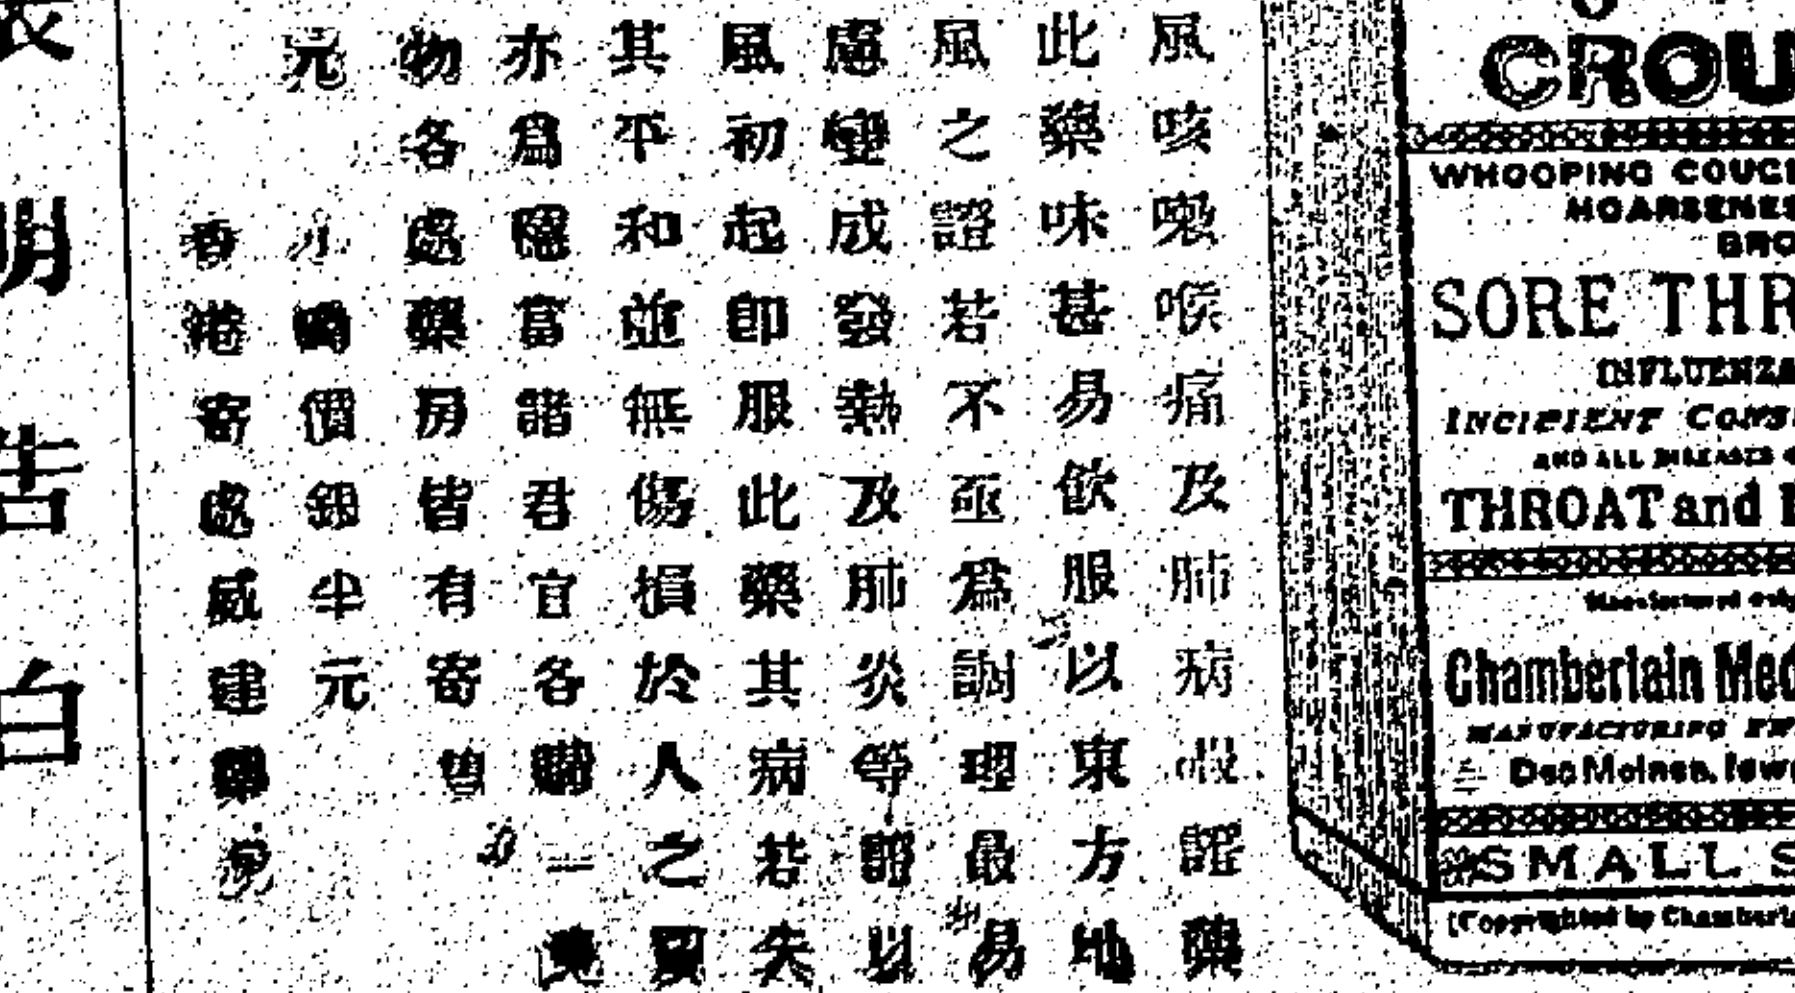 風咳嗽喉痛及肺病咳證藥
此藥味甚易飲服以東方地
風之證若不亟為調理最易
慮變成發熱及肺炎等證以
風初起即服此藥其病若失
其平和並無傷損於人之
亦為隱富諸君宜各購一
物各處藥房皆有寄售
元
小 價銀半元
香港寄處威建藥房
表明告白
CROU
WHOOPING COUG
HOARSENES
BRO
SORE THR
INFLUENZA
INCIPIENT CONS
AND ALL DISEASES
THROAT and
Manufactured only
Chamberlain Med
MANUFACTURING
Des Moines, Iowa
SMALL S
(Copyrighted by Chamberla